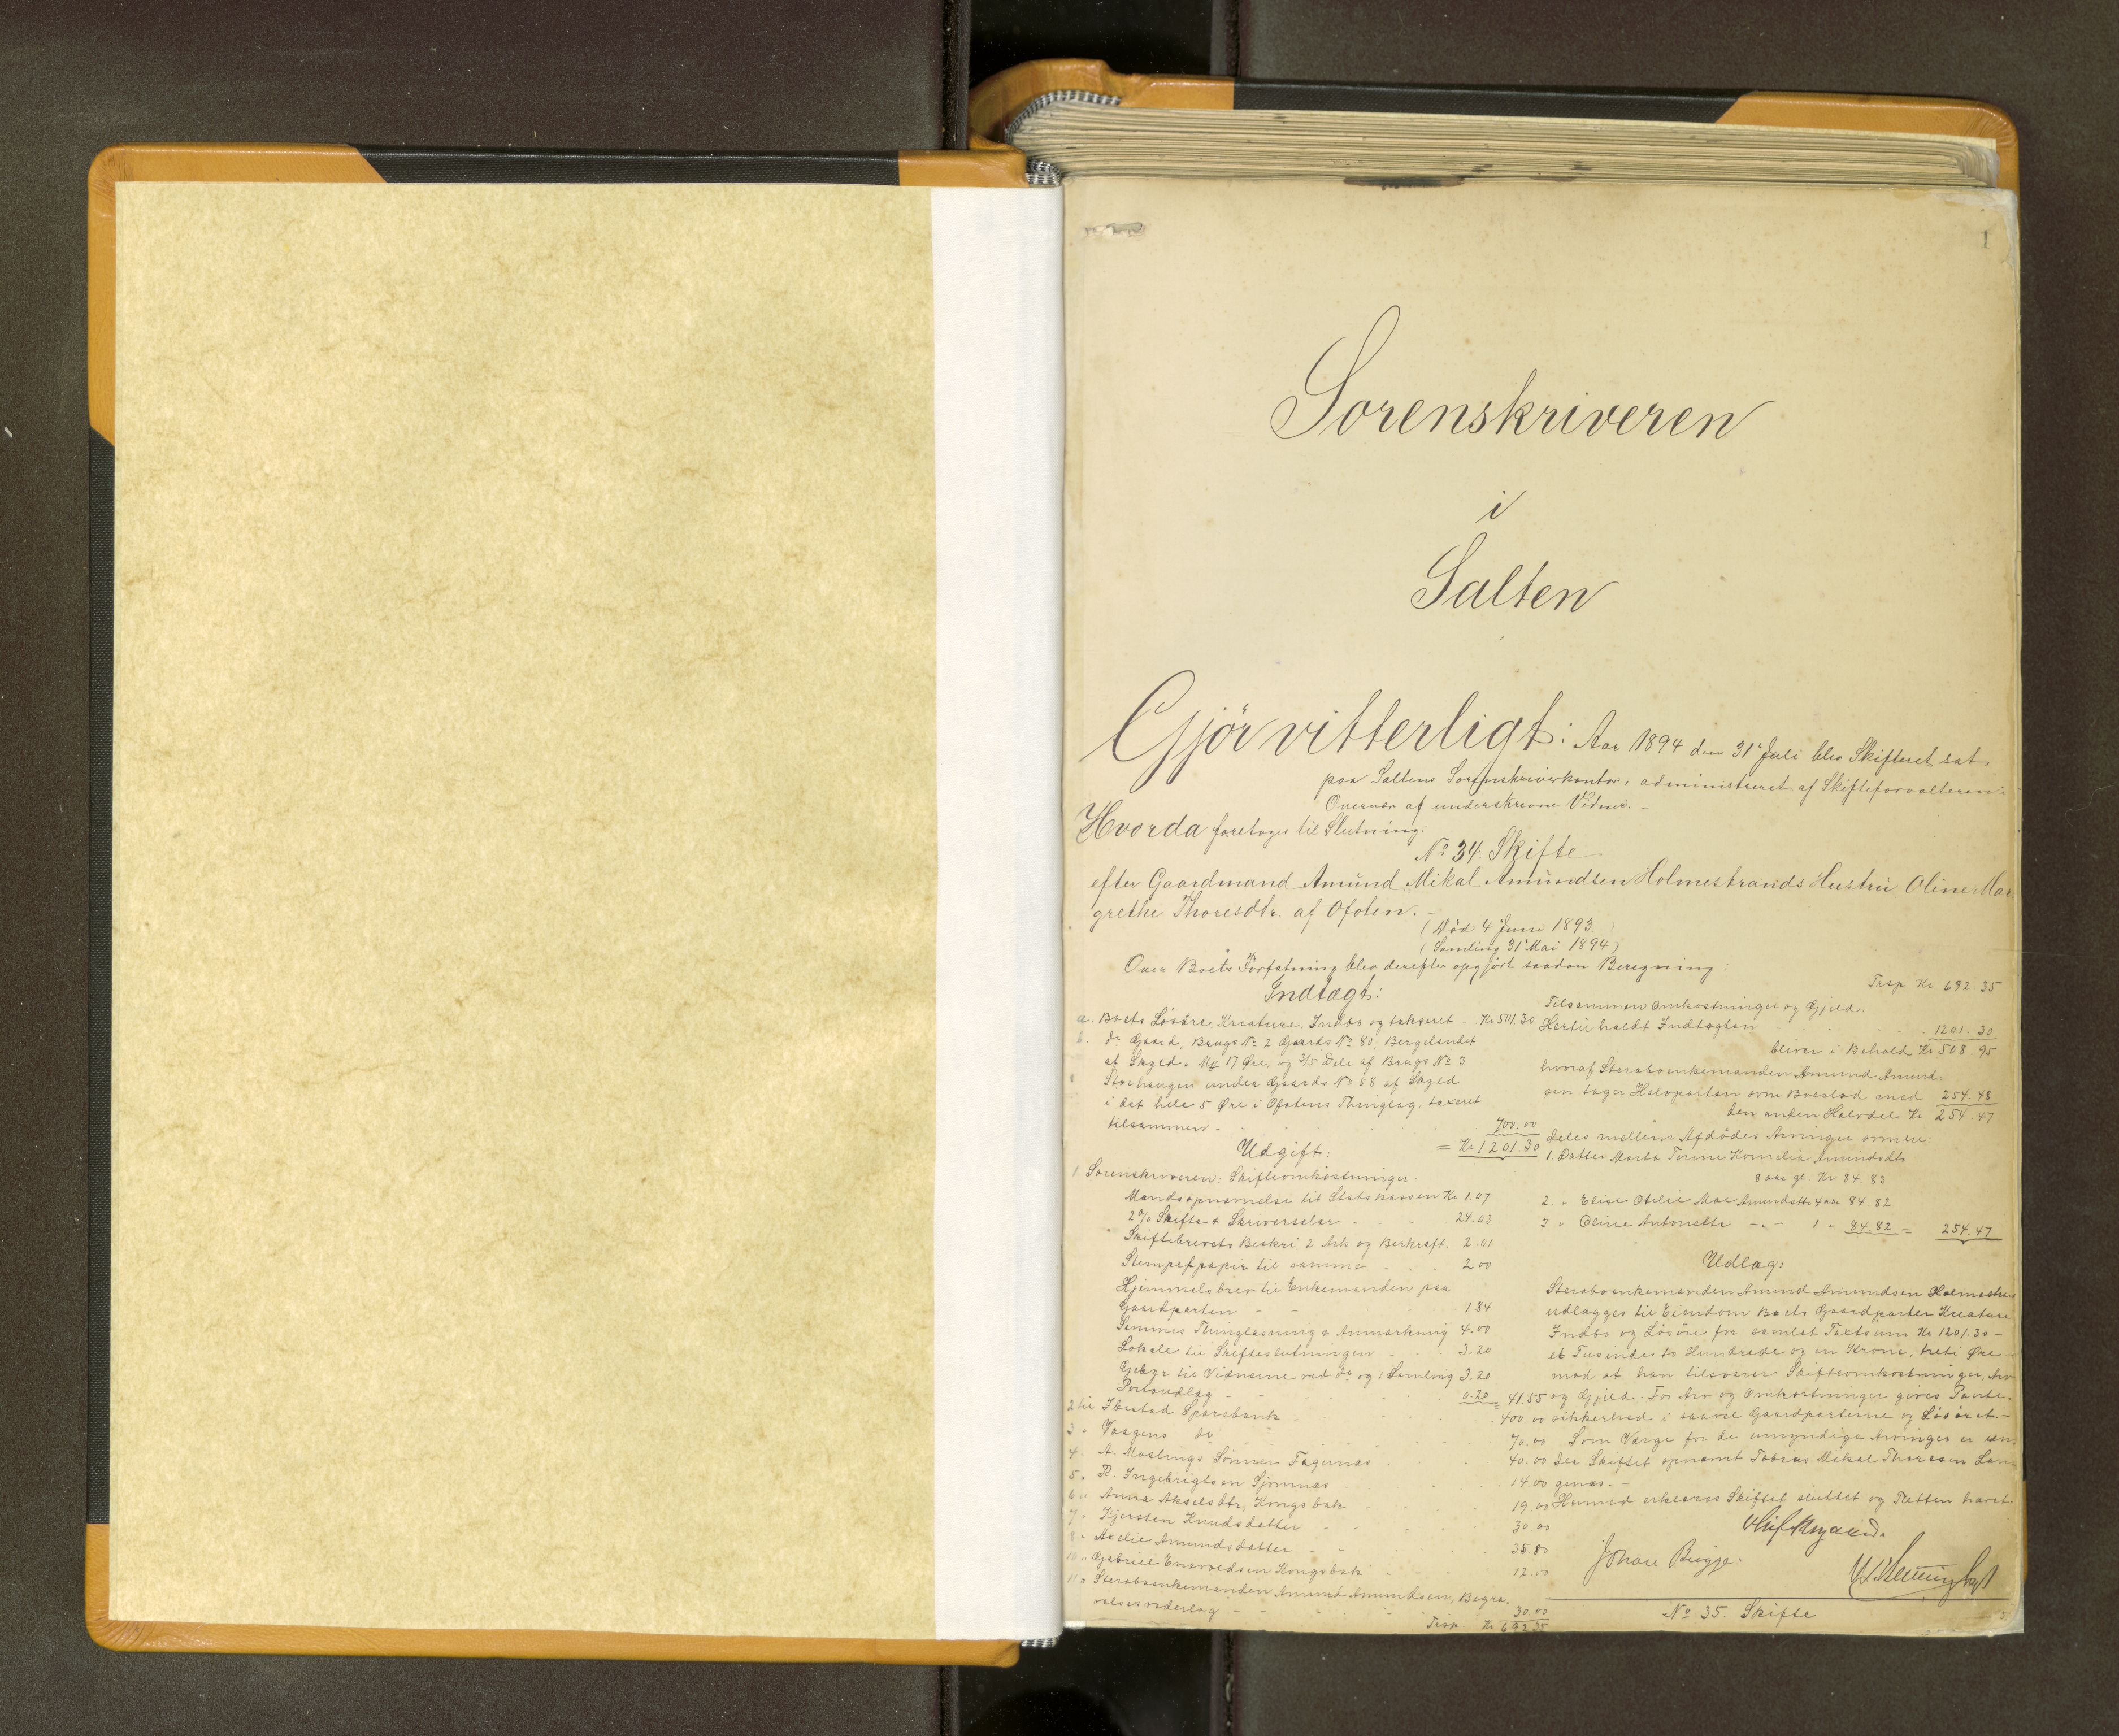 1
Sorenskriveren
i
Salten
Gjör vitterligt: Aar 1894 den 31' Juli blev Skifteret sat
paa Saltens Sorenskriverkontor, administreret af Skifteforvalteren i
Overvær af underskrevne Vidner. -
Hvorda foretoges til Slutning:
No 34. Skifte
efter Gaardmand Amund Mikal Amundsen Holmestrands Hustru Oline Mar
grethe Thoresdtr. af Ofoten. -
(Död 4' Juni 1893.)
(Samling 31' Mai 1894)
Over Boets Forfatning blev derefter opgjört saadan Beregning:
Indtægt:
a. Boets Lösöre, Kreature, Indbo og takseret - Kr 501.30
b. do Gaard, Brugs No 2 Gaards No 80, Bergelandet
af Skyld. Mk 17 Øre, og 3/5 Dele af Brugs No 3
under Gaards No 58 af Skyld
i det hele 5 Øre i Ofotens Thinglag, taxeret
tilsammen - 700.00
= Kr 1201.30
Udgift:
1 Sorenskriveren: Skifteomkostninger.
Mandsopnævnelse til Statskassen Kr 1.07
2% Skifte & Skriverselar - 24.03
Skiftebrevets Beskri. 2 Ark og Berkræft. 2.01
Stempelpapir til samme 2 00
Hjemmelsbrev til Enkemanden paa
Gaardparten - 1 84
Sammes Thinglæsning & Anmærkning 4.00
Lokale til Skifteslutningen - 3.20
Gebyr til Vidnerne ved do og 1 Samling 3.20
Portoudlæg - 0.20 = 41.55
2 til Ibestad Sparebank - 400.00
3 " Vaagens do 70.00
4 " A. Moslings Sönner Fagernæs 40.00
5 " R. Ingebrigtsen Sjomnæs 14.00
6 " Anna Akselsdtr, Kongsbak 19.00
7 " Kjersten Knudsdatter 30.00
8 " Amundsdatter 35.80
10 " Gabriel Enevoldsen Kongsbak 12.00
11 " Sterboenkemanden Amund Amundsen, Begra-
velsesvederlag - 30.00
Trsp. Kr 692.35
Trsp Kr 692.35
Tilsammen Omkostninger og Gjeld.
Hertil holdt Indtægten 1201.30
bliver i Behold Kr 508.95
hvoraf Sterboenkemanden Amund Amund-
sen tager Halvparten som Boeslod med 254.48
den anden Halvdel Kr 254.47
deles mellem Afdödes Arvinger som er:
1 Datter Marta Torine Kornelia Amundsdtr
8 aar gl. Kr 84.83
2. " Elise Otelie Mae Amundsdtr 4 aar 84.82
3 " Oline Antonette -"- 1 " 84.82 = 254.47
Udlæg:
Sterboenkemanden Amund Amundsen Holmestrand
udlægges til Eiendom Boets Gaardparter Kreature
Indbo og Lösöre for samlet Taxtsum Kr 1201.30 -
et Tusinde to Hundrede og en Krone, treti Øre -
mod at han tilsvarer Skifteomkostninger, Arv
og Gjeld. For Arv og Omkostninger gives Pante-
sikkerhed i saavel Gaardparterne og Lösöret. -
Som Værge for de umyndige Arvinger er un-
der Skiftet opnævnt Tobias Mikal Thoresen Lan-
genæs. -
Hermed erklæres Skiftet sluttet og Retten hævet.
Johan Brigge.
No 35. Skifte